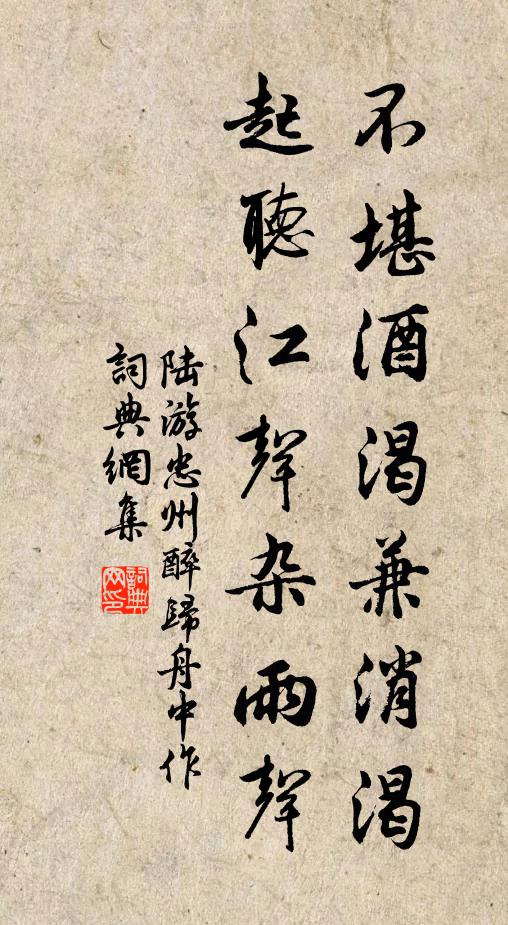 不堪酒渴兼消渴
起聽江聲杂雨聲
陆游忠州醉歸舟中作
詞典網集
詞典